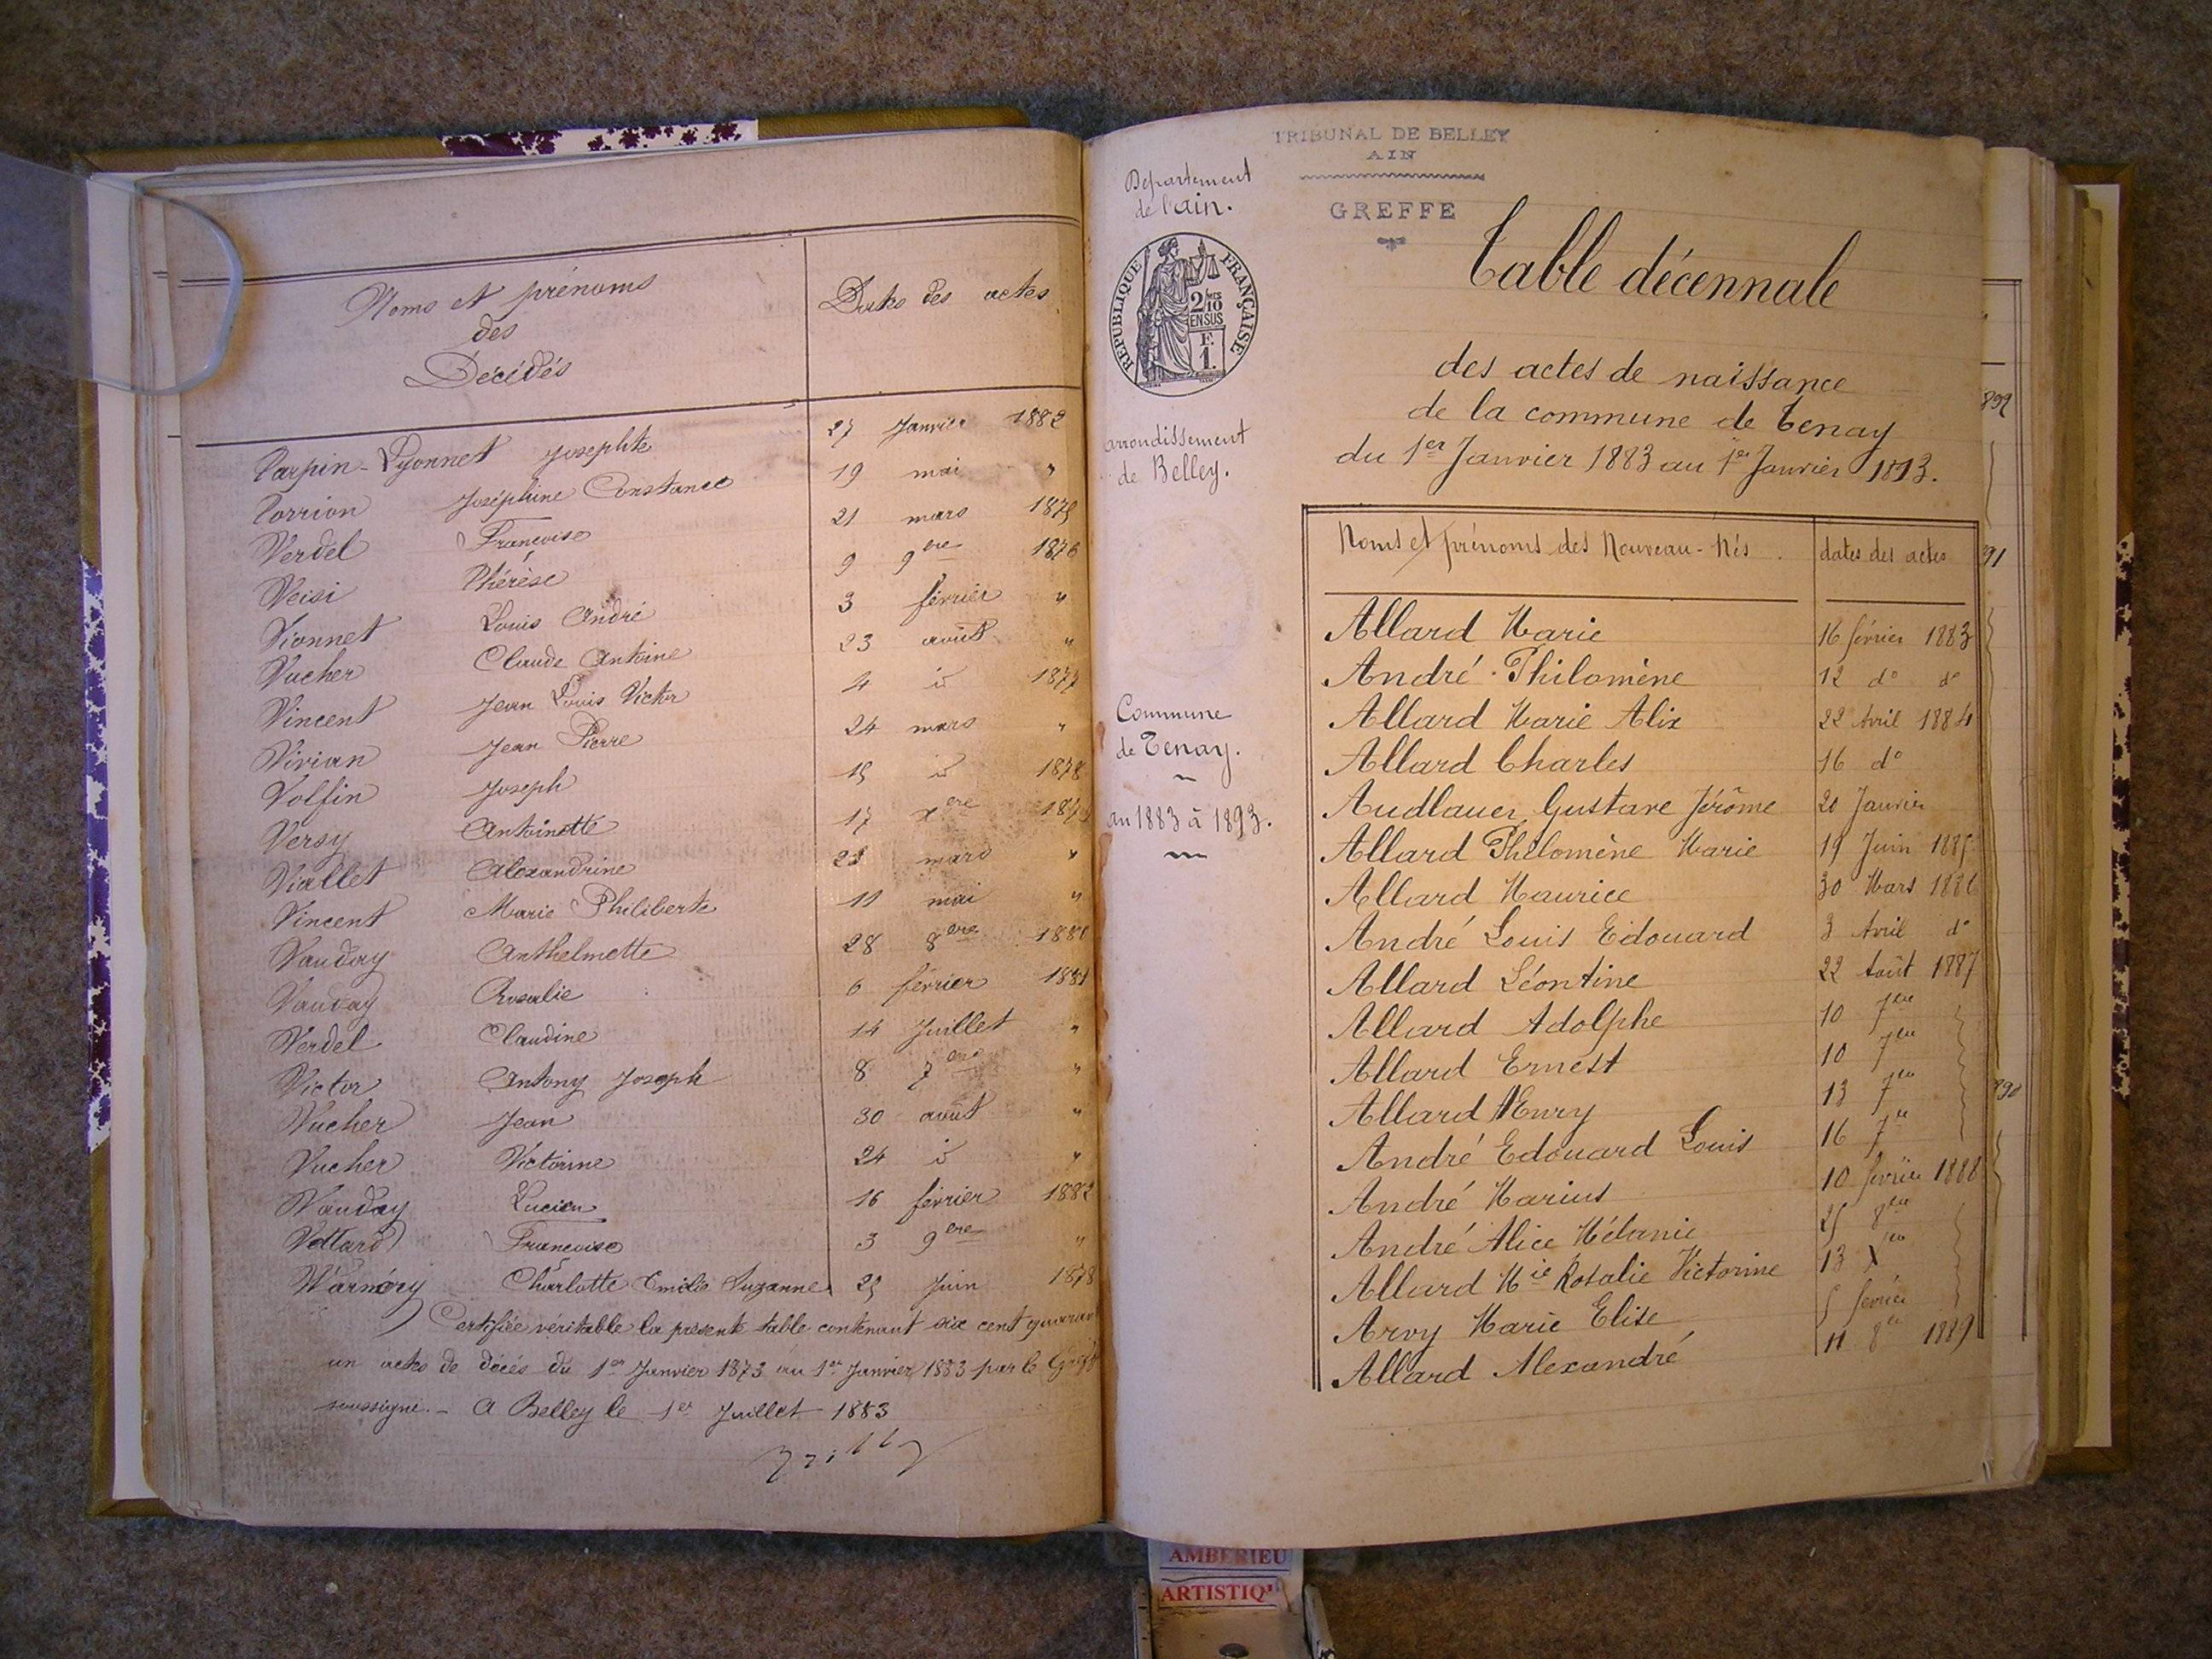 Noms et prénoms
des
Décédés
Dates des actes
Tarpin-Lyonnet Josephte 27 Janvier 1882
Torrion Joséphine Constance 19 mai "
Verdel Françoise 21 mars 1875
Veisi Thérèse 9 9bre 1876
Vionnet Louis André 3 février "
Vucher Claude Antoine 23 août "
Vincent Jean Louis Victor 4 id 1877
Vivian Jean Pierre 24 mars "
Volfin Joseph 15 id 1878
Versy Antoinette 17 xbre
Viallet Alexandrine mars "
Vincent Marie Philiberte 11 mai "
Vauday Anthelmette 28 8bre 1880
Vauday Rosalie 6 février 1881
Verdel Claudine 14 Juillet "
Victor Antony Joseph 8 7bre "
Vucher Jean 30 août "
Vucher Victorine 24 id "
Vauday Lucien 16 février 1882
Vottard Françoise 3 9bre "
Warméry Charlotte Emilie Suzanne 25 Juin 1878
Certifiée véritable la présente table contenant six cent quarant
un actes de décès du 1er Janvier 1873 au 1er Janvier 1883 par le Greff
soussigné. - A Belley le 1er Juillet 1883
TRIBUNAL DE BELLEY
AIN
GREFFE
Département
de l'ain.
RÉPUBLIQUE FRANÇAISE
2/10 MES
EN SUS
F.
1.
arrondissement
de Belley.
Commune
de Tenay.
an 1883 à 1893.
Table décennale
des actes de naissance
de la commune de Tenay
du 1er Janvier 1883 au 1er Janvier 1893.
Noms et prénoms des Nouveau-Nés. dates des actes
Allard Marie 16 février 1883
André Philomène 12 do do
Allard Marie Alix 22 Avril 1884
Allard Charles 16 do
Audlauer Gustave Jérôme 20 Janvier
Allard Philomène Marie 19 Juin 1885
Allard Maurice 30 Mars 1886
André Louis Edouard 3 Avril do
Allard Léontine 22 Août 1887
Allard Adolphe 10 7bre
Allard Ernest 10 7bre
Allard Henry 13 7bre
André Edouard Louis 16 7bre
André Marius 10 février 1888
André Alice Mélanie 25 8bre
Allard Mie Rosalie Victorine 13 Xbre
Arvy Marie Elise 5 février
Allard Alexandre 11 8bre 1889
892
91
890
AMBERIEU
ARTISTIQ